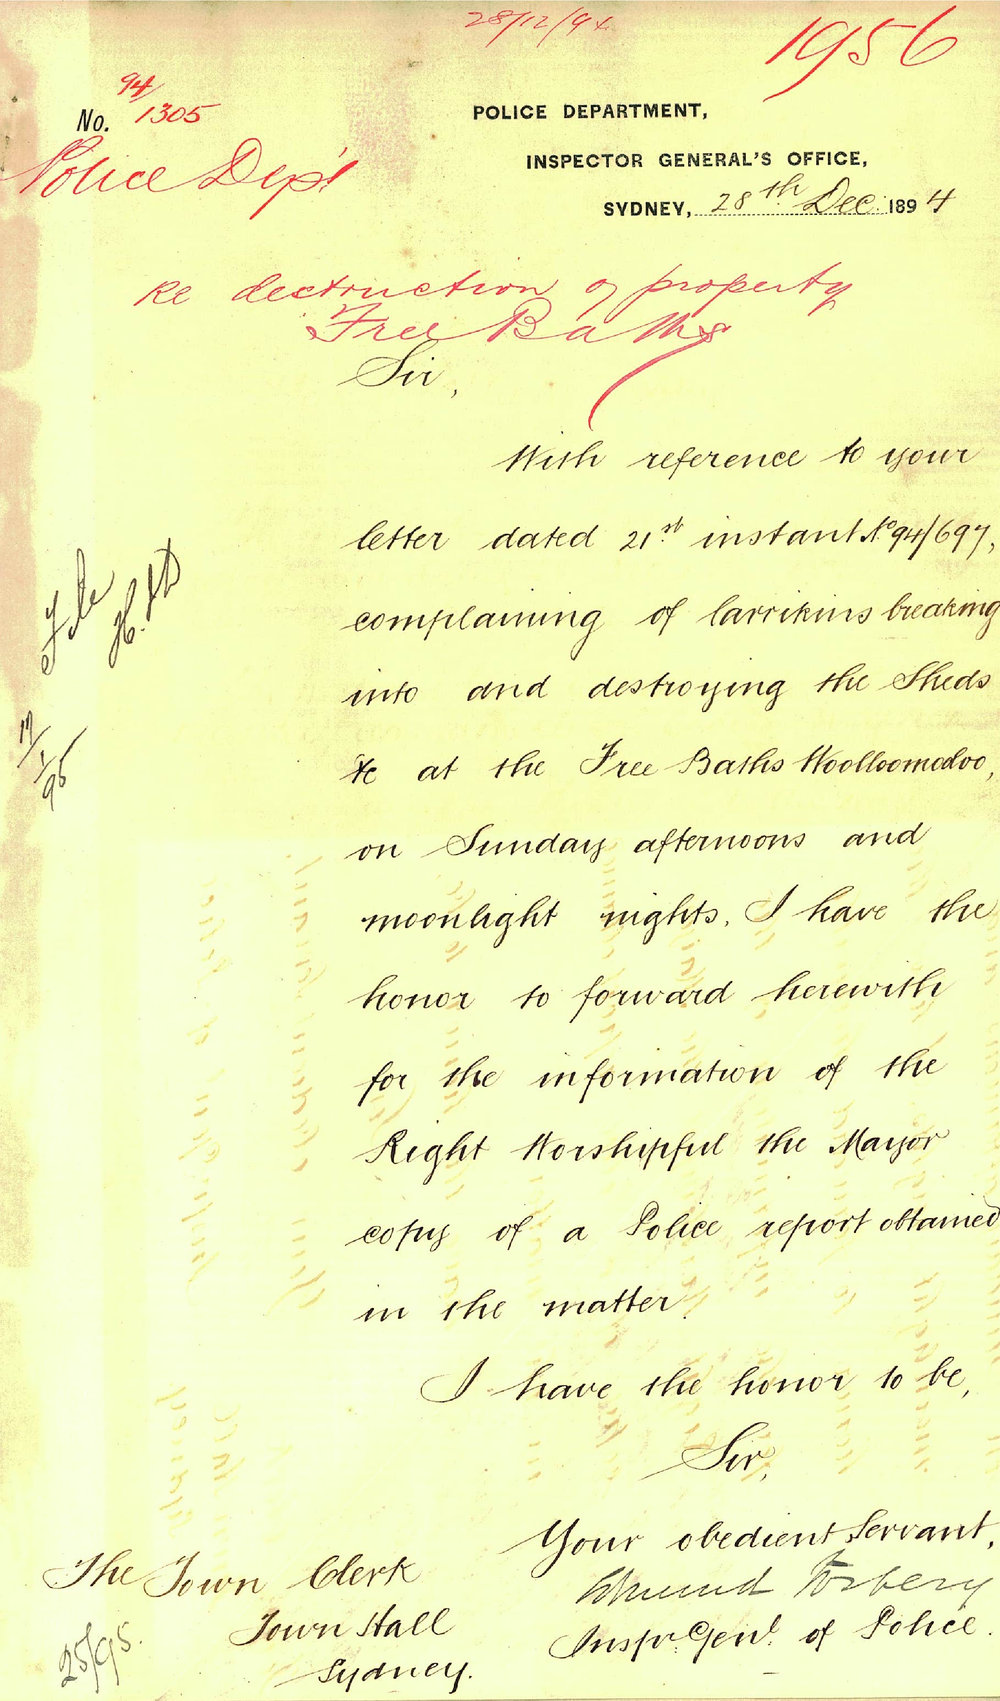 28/12/94
1956
94/
No. 1305
Police Dept
POLICE DEPARTMENT,
INSPECTOR GENERAL'S OFFICE,
SYDNEY, 28th Dec. 1894
Re destruction of property
Free Baths
Sir,
With reference to your
letter dated 21st instant No 94/697,
complaining of larrikins breaking
into and destroying the Sheds
&c at the Free Baths Woolloomooloo,
on Sunday afternoons and
moonlight nights, I have the
honor to forward herewith
for the information of the
Right Worshipful the Mayor
copy of a Police report obtained
in the matter.
I have the honor to be,
Sir,
Your obedient Servant,
Edmund Fosbery
Inspr. Genl. of Police.
The Town Clerk
Town Hall
Sydney.
File
25/95.